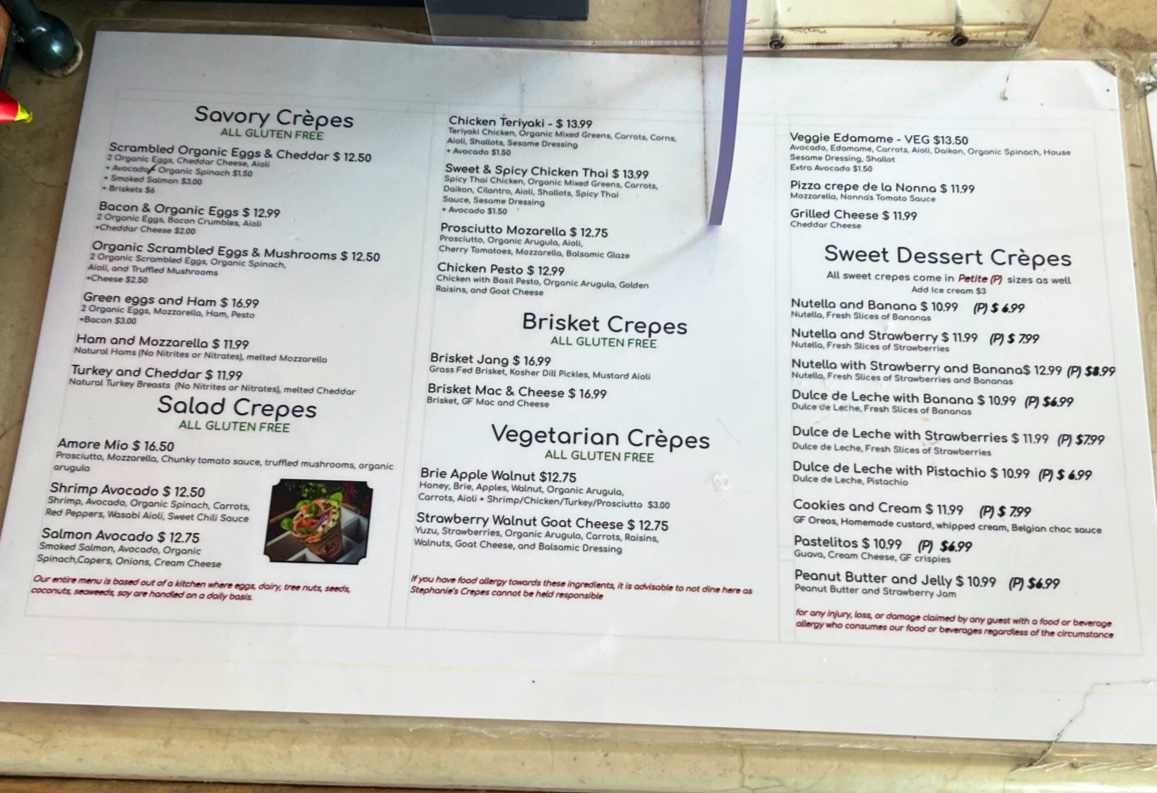 Savory Crèpes
ALL GLUTEN FREE
Scrambled Organic Eggs & Cheddar $ 12.50
2 Organic Eggs, Cheddar Cheese, Aioli
+ Avocado Organic Spinach $1.50
+ Smoked Salmon $3.00
+ Briskets $6
Bacon & Organic Eggs $ 12.99
2 Organic Eggs, Bacon Crumbles, Aioli
+Cheddar Cheese $2.00
Organic Scrambled Eggs & Mushrooms $ 12.50
2 Organic Scrambled Eggs, Organic Spinach,
Aioli, and Truffled Mushrooms
+Cheese $2.50
Green eggs and Ham $ 16.99
2 Organic Eggs, Mozzarella, Ham, Pesto
+Bacon $3.00
Ham and Mozzarella $ 11.99
Natural Hams (No Nitrites or Nitrates), melted Mozzarella
Turkey and Cheddar $ 11.99
Natural Turkey Breasts (No Nitrites or Nitrates), melted Cheddar
Salad Crepes
ALL GLUTEN FREE
Amore Mio $ 16.50
Prosciutto, Mozzarella, Chunky tomato sauce, truffled mushrooms, organic
arugula
Shrimp Avocado $ 12.50
Shrimp, Avocado, Organic Spinach, Carrots,
Red Peppers, Wasabi Aioli, Sweet Chili Sauce
Salmon Avocado $ 12.75
Smoked Salmon, Avocado, Organic
Spinach,Capers, Onions, Cream Cheese
Our entire menu is based out of a kitchen where eggs, dairy, tree nuts, seeds,
coconuts, seaweeds, soy are handled on a daily basis.
Chicken Teriyaki - $ 13.99
Teriyaki Chicken, Organic Mixed Greens, Carrots, Corns,
Aioli, Shallots, Sesame Dressing
+ Avocado $1.50
Sweet & Spicy Chicken Thai $ 13.99
Spicy Thai Chicken, Organic Mixed Greens, Carrots,
Daikon, Cilantro, Aioli, Shallots, Spicy Thai
Sauce, Sesame Dressing
+ Avocado $1.50
Prosciutto Mozarella $ 12.75
Prosciutto, Organic Arugula, Aioli,
Cherry Tomatoes, Mozzarella, Balsamic Glaze
Chicken Pesto $ 12.99
Chicken with Basil Pesto, Organic Arugula, Golden
Raisins, and Goat Cheese
Brisket Crepes
ALL GLUTEN FREE
Brisket Jang $ 16.99
Grass Fed Brisket, Kosher Dill Pickles, Mustard Aioli
Brisket Mac & Cheese $ 16.99
Brisket, GF Mac and Cheese
Vegetarian Crèpes
ALL GLUTEN FREE
Brie Apple Walnut $12.75
Honey, Brie, Apples, Walnut, Organic Arugula,
Carrots, Aioli + Shrimp/Chicken/Turkey/Prosciutto $3.00
Strawberry Walnut Goat Cheese $ 12.75
Yuzu, Strawberries, Organic Arugula, Carrots, Raisins,
Walnuts, Goat Cheese, and Balsamic Dressing
If you have food allergy towards these ingredients, it is advisable to not dine here as
Stephanie's Crepes cannot be held responsible
Veggie Edamame - VEG $13.50
Avocado, Edamame, Carrots, Aioli, Daikon, Organic Spinach, House
Sesame Dressing, Shallot
Extra Avocado $1.50
Pizza crepe de la Nonna $ 11.99
Mozzarella, Nonna's Tomato Sauce
Grilled Cheese $ 11.99
Cheddar Cheese
Sweet Dessert Crèpes
All sweet crepes come in Petite (P) sizes as well
Add Ice cream $3
Nutella and Banana $ 10.99 (P) $ 6.99
Nutella, Fresh Slices of Bananas
Nutella and Strawberry $ 11.99 (P) $ 7.99
Nutella, Fresh Slices of Strawberries
Nutella with Strawberry and Banana$ 12.99 (P) $8.99
Nutella, Fresh Slices of Strawberries and Bananas
Dulce de Leche with Banana $ 10.99 (P) $6.99
Dulce de Leche, Fresh Slices of Bananas
Dulce de Leche with Strawberries $ 11.99 (P) $7.99
Dulce de Leche, Fresh Slices of Strawberries
Dulce de Leche with Pistachio $ 10.99 (P) $ 6.99
Dulce de Leche, Pistachio
Cookies and Cream $ 11.99 (P) $ 7.99
GF Oreos, Homemade custard, whipped cream, Belgian choc sauce
Pastelitos $ 10.99 (P) $6.99
Guava, Cream Cheese, GF crispies
Peanut Butter and Jelly $ 10.99 (P) $6.99
Peanut Butter and Strawberry Jam
for any injury, loss, or damage claimed by any guest with a food or beverage
allergy who consumes our food or beverages regardless of the circumstance